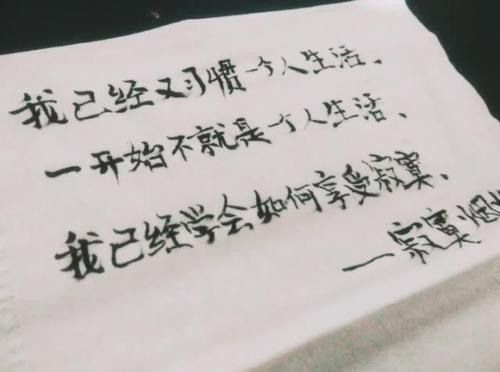 我已经又习惯一个人生活、
一开始不就是一个人生活、
我已经学会如何享受寂寞、
—寂寞烟